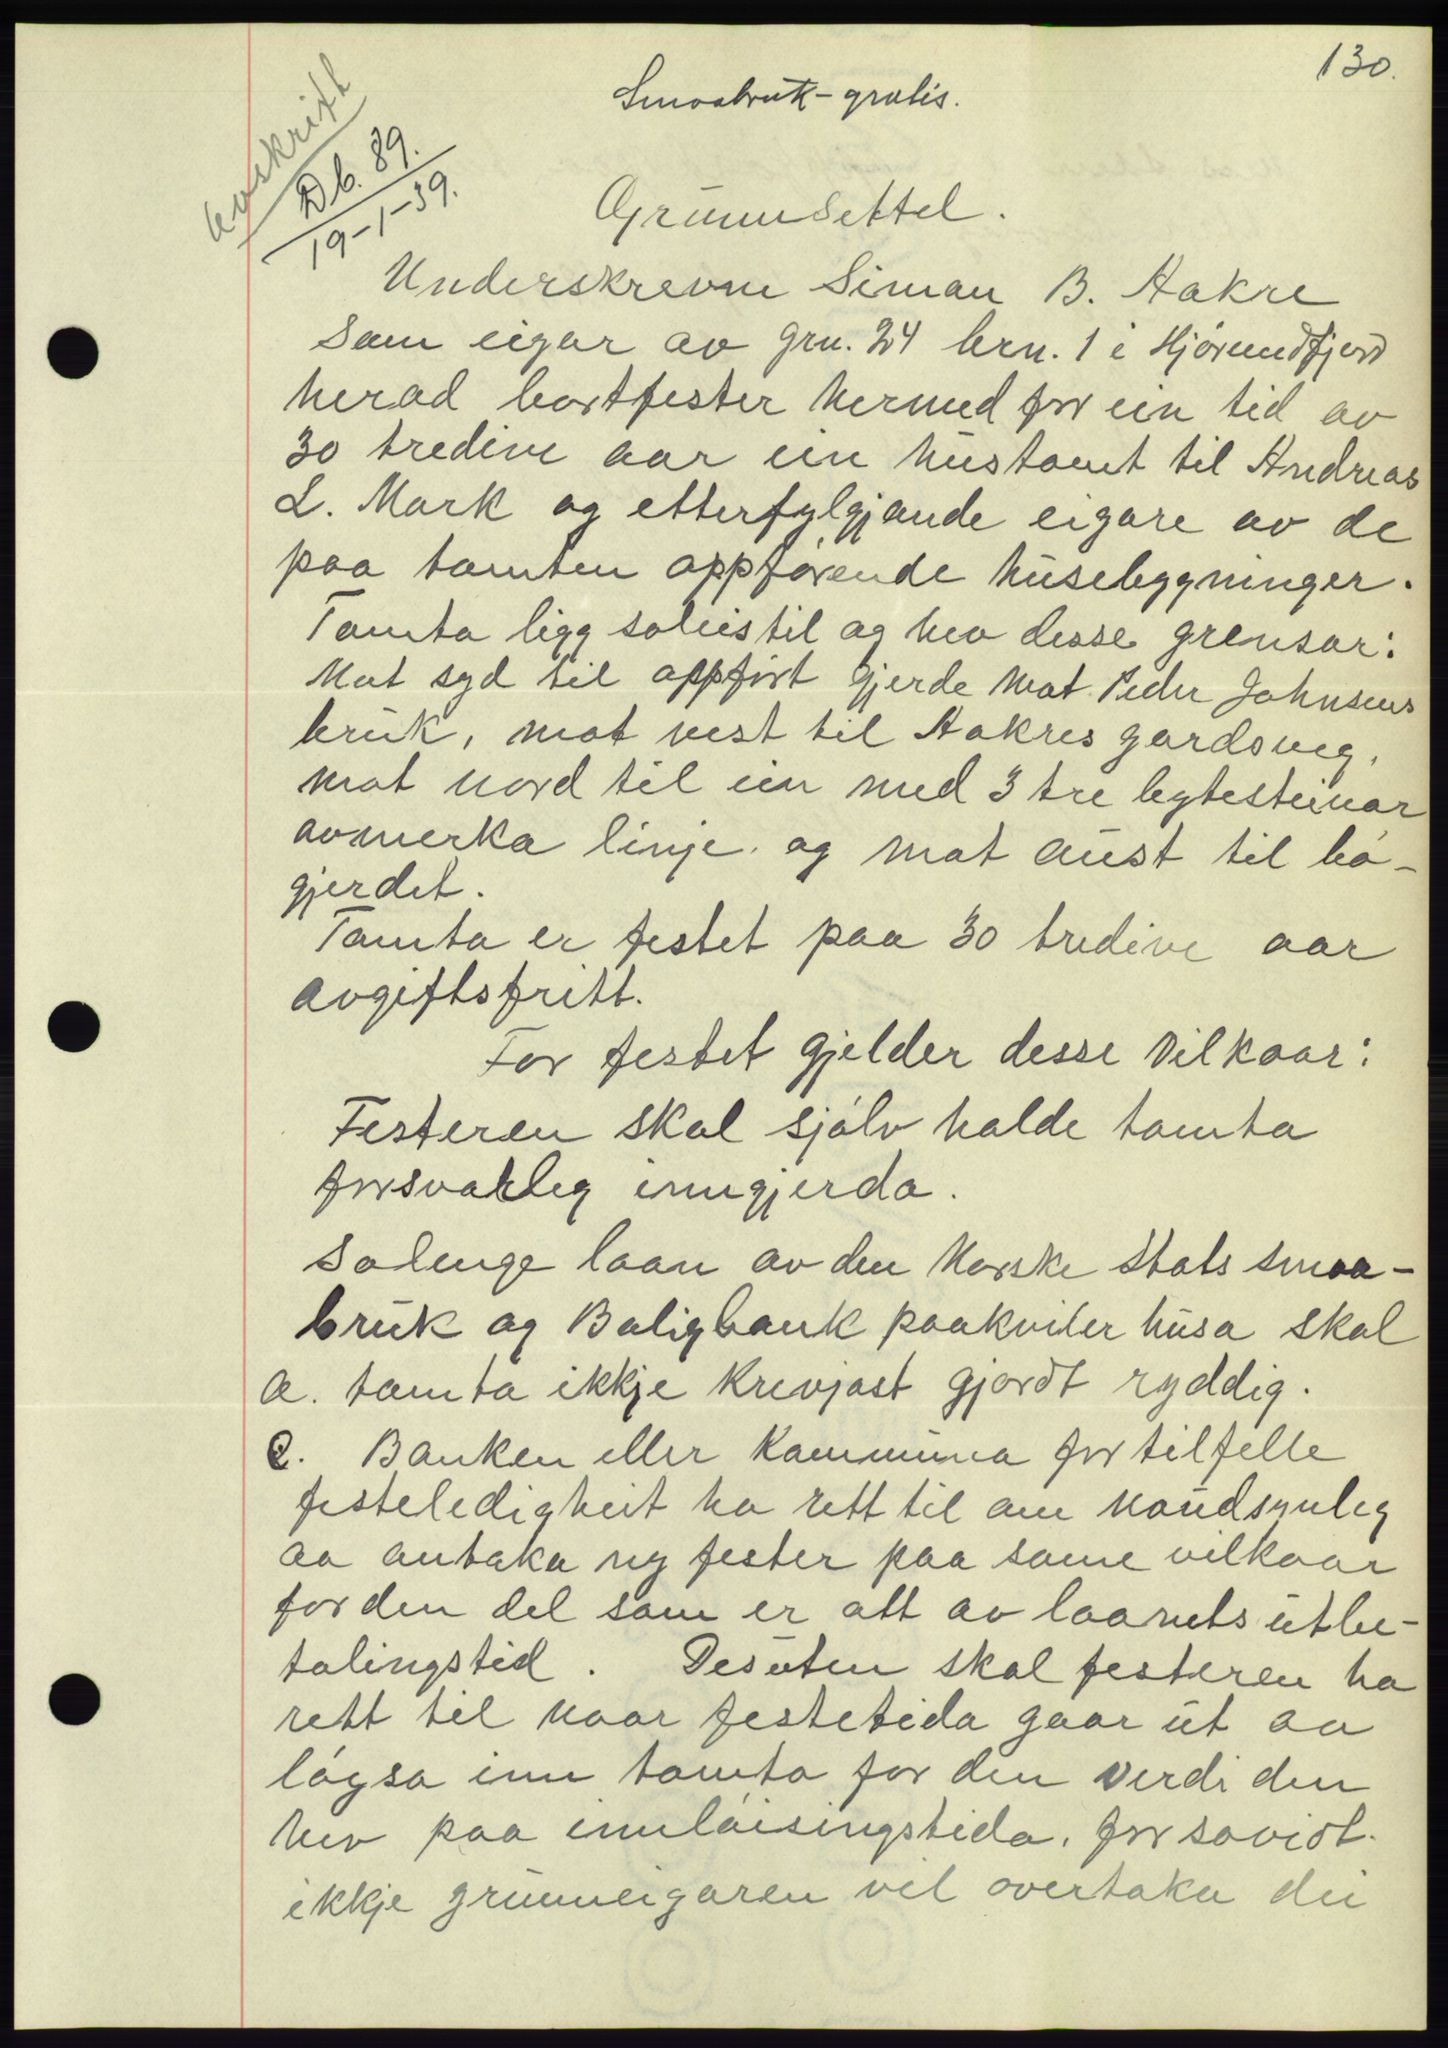 130.
Smaabruk - gratis.
Avskrift
Db. 89.
19-1-39.
Grunnsettel.
Underskrevne Simon B. Aakre
som eigar av grn. 24 brn. 1 i Hjørundfjord
herad bortfester hermed for ein tid av
30 tredive aar ein hustomt til Andreas
L. Mork og etterfylgjande eigare av de
paa tomten oppførende husebygninger.
Tomta ligg soleis til og hev desse grensor:
Mot syd til oppført gjerde mot Peder Johnsens
bruk, mot vest til Aakres gardsveg,
mot nord til ein med 3 tre bytesteinar
avmerka linje og mot aust til bø-
gjerdet.
Tomta er festet paa 30 tredive aar
avgiftsfritt.
For festet gjelder desse vilkaar:
Festeren skal sjølv halde tomta
forsvarleg inngjerda.
Solenge laan av den Norske Stats smaa-
bruk og Boligbank paakviler husa skal
a. tomta ikkje krevjast gjordt ryddig.
c. Banken eller Kommuna for tilfelle
festeledigheit ha rett til om naudsynleg
aa antaka ny fester paa same vilkaar
for den del som er att av laanets utbe-
talingstid. Desuten skal festeren ha
rett til naar festetida gaar ut aa
løysa inn tomta for den verdi den
hev paa innløisingstida, for sovidt
ikkje grunneigaren vil overtaka dei